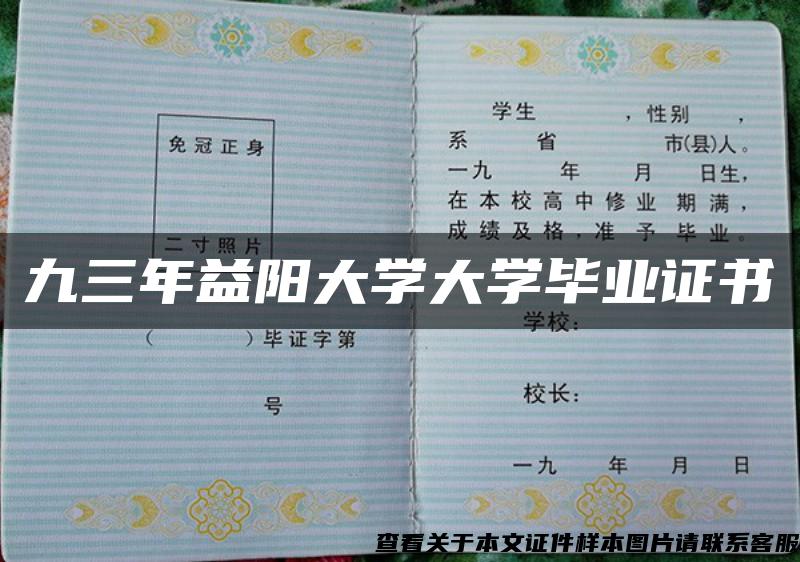 免冠正身
二寸照片
（ ）毕证字第
号
学生 ，性别 ，
系 省 市(县)人。
一九 年 月 日生，
在本校高中修业 期满，
成绩及格，准 予 毕业。
九三年益阳大学大学毕业证书
学校：
校长：
一九 年 月 日
查看关于本文证件样本图片请联系客服